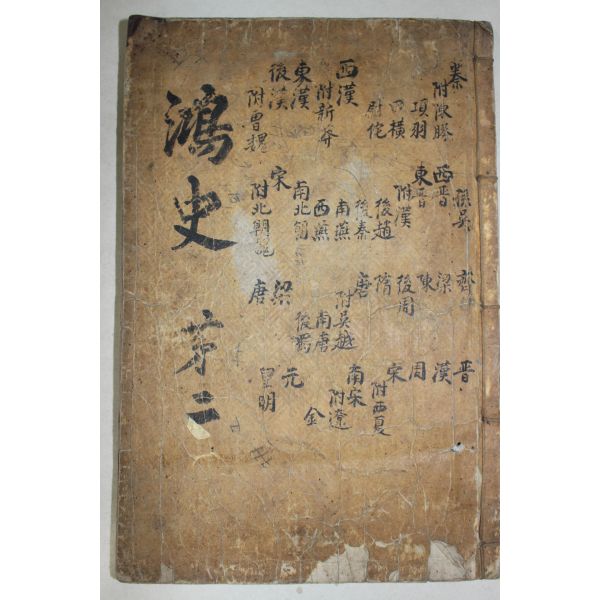 鴻史 苐二
秦
附陳勝
項羽
田橫
尉佗
西漢
附新莽
東漢
後漢
附曹魏
孫吳
西晋
東晋
附漢
後趙
後秦
南燕
西燕
南北朝
宋
附北朝魏
齊
梁
陳
後周
隋
唐
附吳越
南唐
後蜀
梁
唐
晋
漢
周
宋
附西夏
南宋
附遼
金
元
皇明